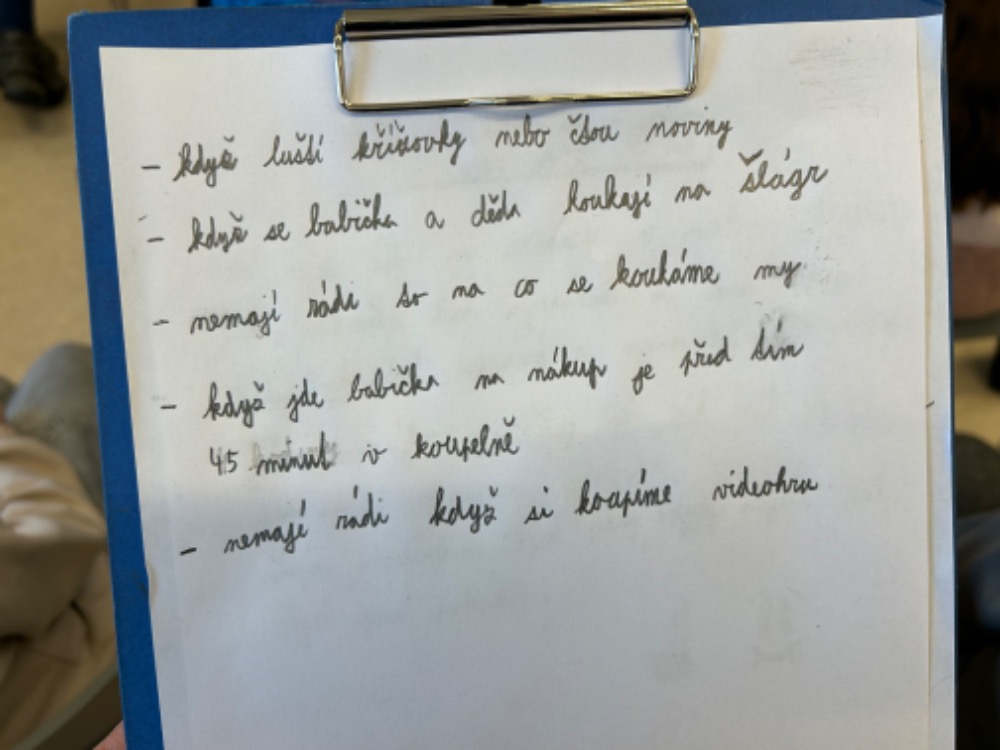 - když luští křížovky nebo čtou noviny
- když se babička a děda koukají na Šlágr
- nemají rádi to na co se koukáme my
- když jde babička na nákup je před tím
45 minut v koupelně
- nemají rádi když si koupíme videohru